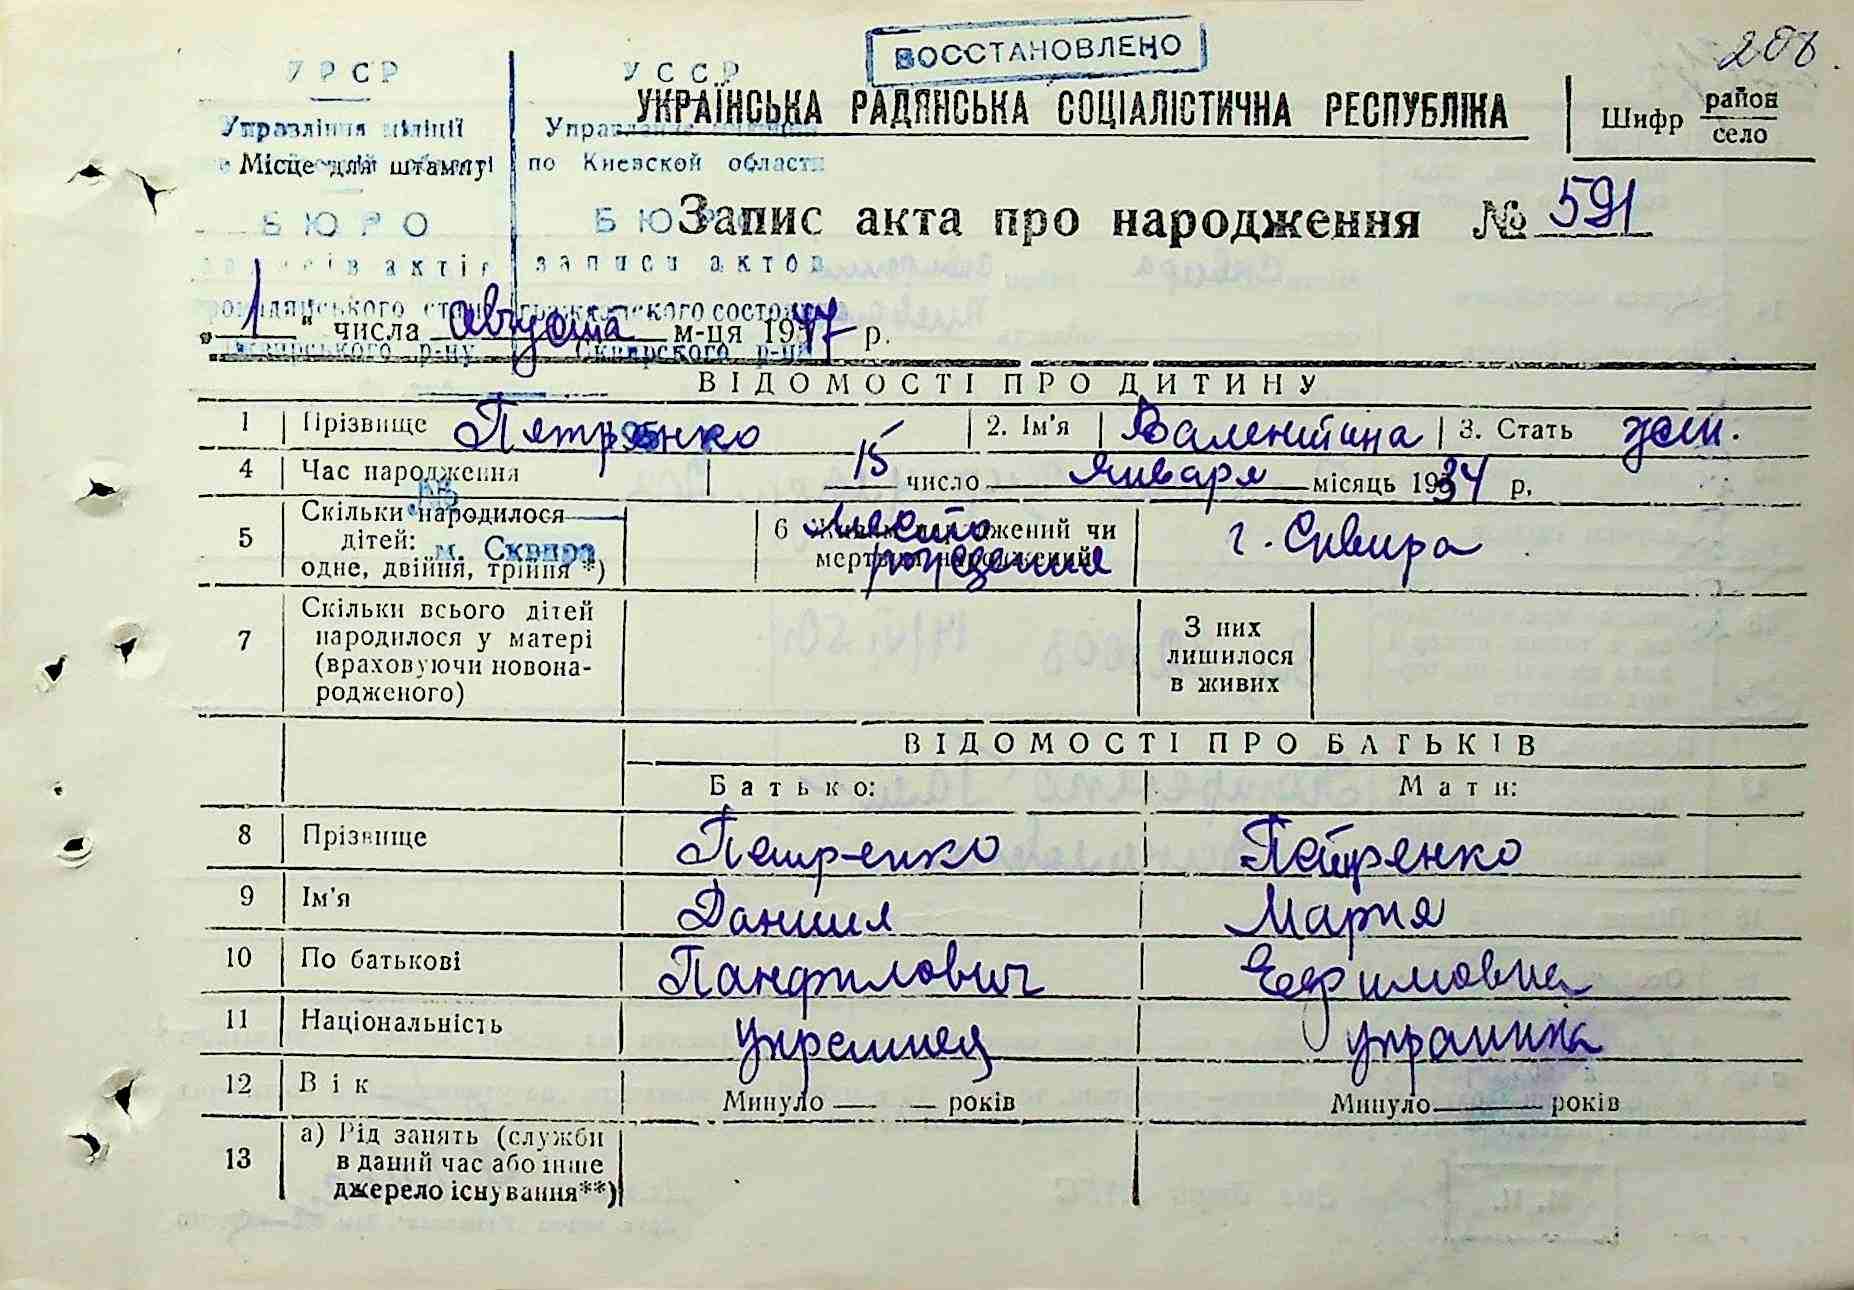 ВОССТАНОВЛЕНО
208.
УРСР
УССР
УКРАЇНСЬКА РАДЯНСЬКА СОЦІАЛІСТИЧНА РЕСПУБЛІКА
Шифр район
село
Управління міліції
Управление милиции
Місце для штампу
по Киевской области
БЮРО
БЮРО
Запис акта про народження № 591
записів актів
записи актов
громадянського стану
гражданского состояния
„ 1 " числа августа м-ця 1947 р.
Сквирського р-ну
Сквирского р-на
ВІДОМОСТІ ПРО ДИТИНУ
1 Прізвище Петренко 2. Ім'я Валентина 3. Стать жен.
195
4 Час народження 15 число января місяць 1934 р.
5 Скільки народилося дітей: одне, двійня, трійня *)
м. Сквира
6 Живим народжений чи мертвим народжений
место рождения
г. Сквира
7 Скільки всього дітей народилося у матері (враховуючи новонародженого)
З них лишилося в живих
ВІДОМОСТІ ПРО БАТЬКІВ
Батько: Мати:
8 Прізвище Петренко Петренко
9 Ім'я Даниил Мария
10 По батькові Панфилович Ефимовна
11 Національність украинец украинка
12 Вік Минуло — — років Минуло — років
13 а) Рід занять (служби
в даний час або інше
джерело існування**)